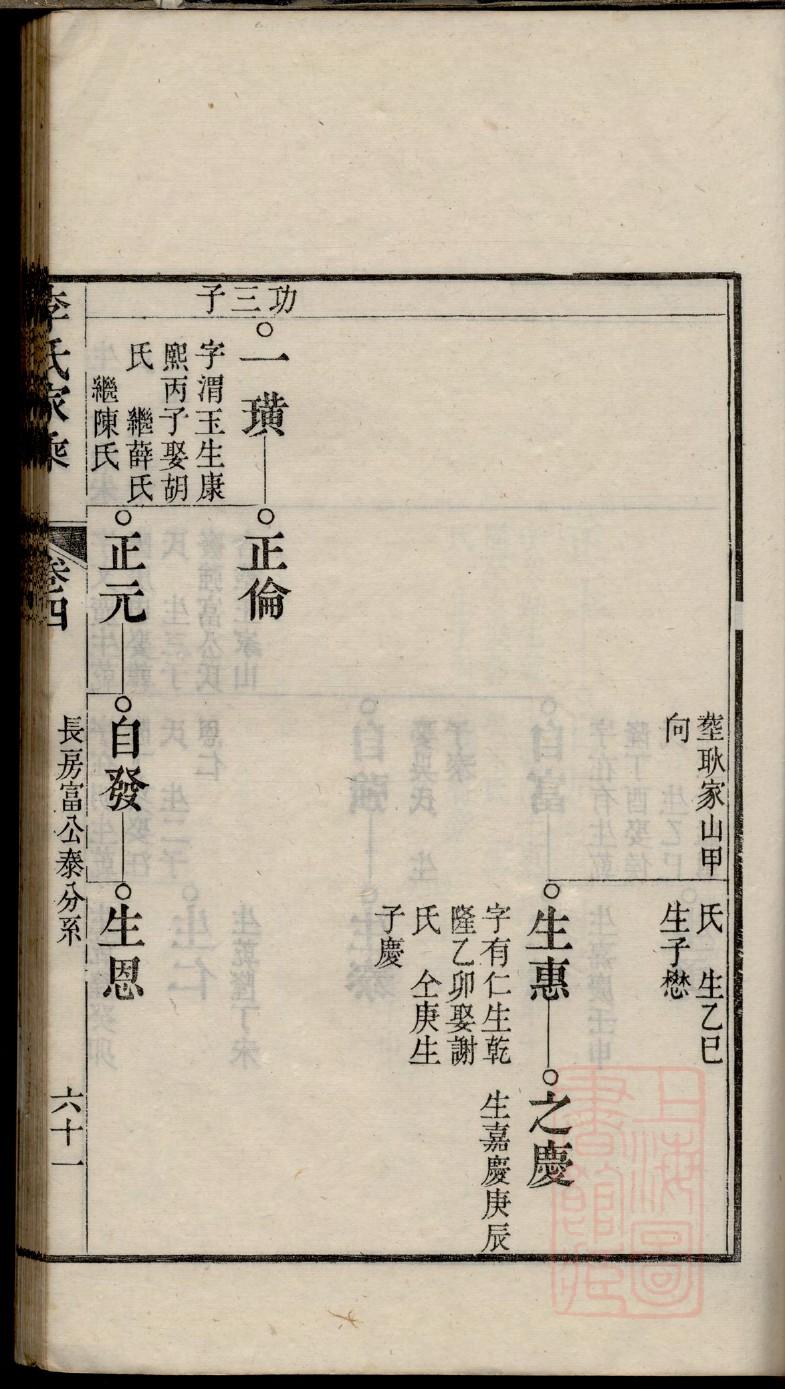 塟耿家山甲
向
氏　生乙巳
生子懋
生惠
字有仁生乾
隆乙卯娶謝
氏　仝庚生
子慶
之慶
生嘉慶庚辰
功三子
一璜
字渭玉生康
熙丙子娶胡
氏　繼薛氏
繼陳氏
正倫
正元
自發
生恩
李氏家乘
卷四
長房富公泰分系
六十一
上海圖
書館藏